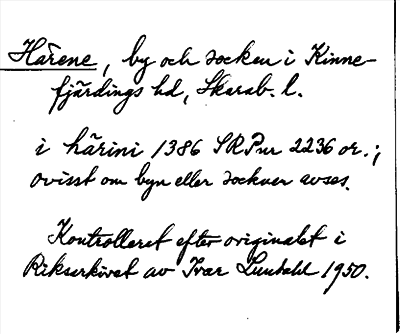 Härene, by och socken i Kinne-
fjärdings hd, Skarab. l.
i härini 1386 SRPur 2236 or.;
ovisst om byn eller socknen avses.
Kontrollerat efter originalet i
Riksarkivet av Ivar Lundahl 1950.